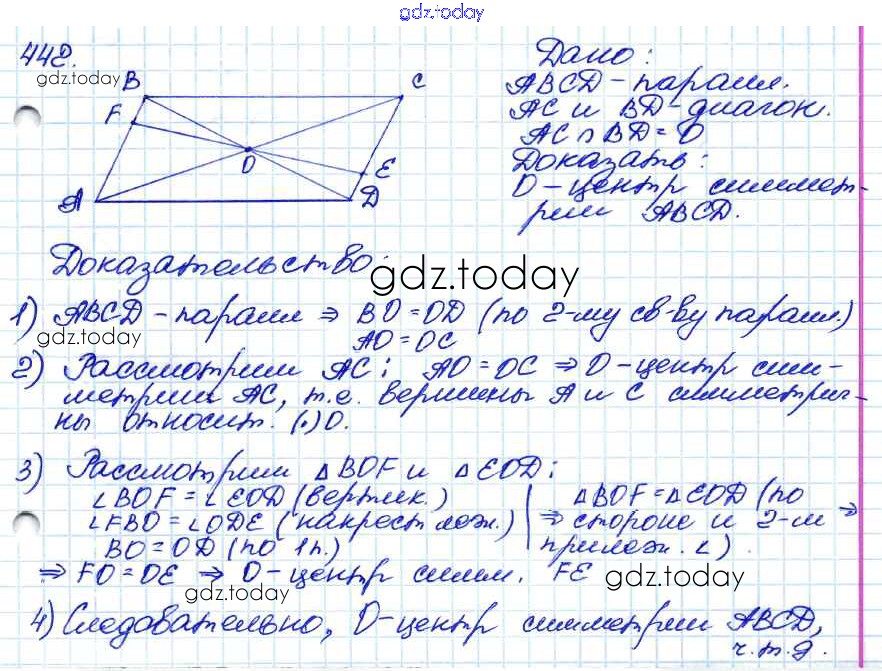 gdz.today
442.
gdz.today
B
C
F
O
E
A
D
Дано:
ABCD - паралл.
AC и BD - диагон.
AC ∩ BD = O
Доказать:
O - центр симмет-
рии ABCD.
Доказательство:
gdz.today
1) ABCD - паралл ⇒ BO = OD (по 2-му св-ву паралл.)
AO = OC
gdz.today
2) Рассмотрим AC: AO = OC ⇒ O - центр сим-
метрии AC, т.е. вершины A и C симметрич-
ны относит. (.) O.
3) Рассмотрим △BOF и △EOD:
∠BOF = ∠EOD (вертик.)
∠FBO = ∠ODE (накрест леж.)
BO = OD (по 1п.)
△BOF = △EOD (по
⇒ стороне и 2-м ⇒
прилеж. ∠)
⇒ FO = OE ⇒ O - центр симм. FE
gdz.today
4) Следовательно, O - центр симметрии ABCD,
ч.т.д.